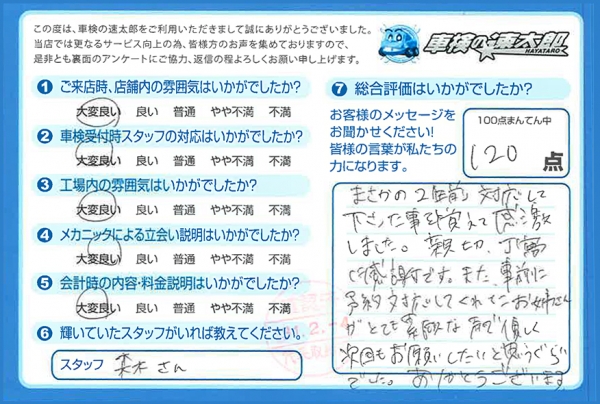 この度は、車検の速太郎をご利用いただきまして誠にありがとうございました。
当店では更なるサービス向上の為、皆様方のお声を集めておりますので、
是非とも裏面のアンケートにご協力、返信の程よろしくお願い申し上げます。
車検の速太郎
HAYATARO
1 ご来店時、店舗内の雰囲気はいかがでしたか?
大変良い 良い 普通 やや不満 不満
2 車検受付時スタッフの対応はいかがでしたか?
大変良い 良い 普通 やや不満 不満
3 工場内の雰囲気はいかがでしたか?
大変良い 良い 普通 やや不満 不満
4 メカニックによる立会い説明はいかがでしたか?
大変良い 良い 普通 やや不満 不満
5 会計時の内容・料金説明はいかがでしたか?
大変良い 良い 普通 やや不満 不満
6 輝いていたスタッフがいれば教えてください。
スタッフ 森本さん
7 総合評価はいかがでしたか?
お客様のメッセージを
お聞かせください!
皆様の言葉が私たちの
力になります。
100点まんてん中
120 点
まさかの2年前対応して
下さった事を覚えて感激
しました。親切、丁寧
で感謝です。また、事前に
予約対応してくれたお姉さん
がとても素敵な声で優しく
次回もお願いしたいと思うぐらい
でした。ありがとうございます
2.-4